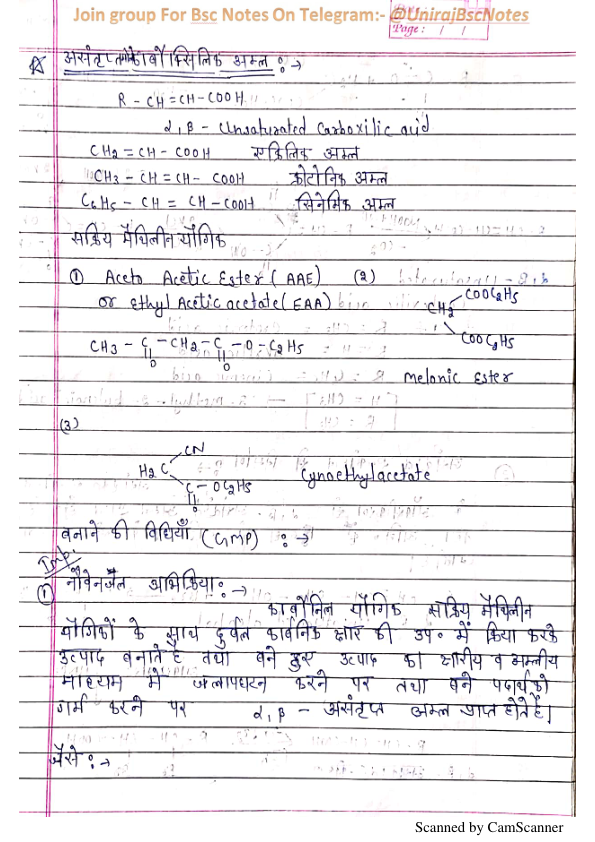 Join group For Bsc Notes On Telegram:- @UnirajBscNotes
Page: / /
असंतृप्त कार्बोक्सिलिक अम्ल :→
R - CH = CH - COOH
α, β - Unsaturated Carboxilic acid
CH2 = CH - COOH एक्रिलिक अम्ल
CH3 - CH = CH - COOH क्रोटोनिक अम्ल
C6H5 - CH = CH - COOH सिनेमिक अम्ल
सक्रिय मैथिलीन यौगिक
① Aceto Acetic Ester (AAE) (2)
or Ethyl Acetic acetate (EAA)
CH2
COOC2H5
COOC2H5
CH3 - C - CH2 - C - O - C2H5
O O
Melonic Ester
(3)
CN
H2C
C - OC2H5
O
Cynoethylacetate
बनाने की विधियाँ (GMP) :→
Imp.
① नोवेनजैल अभिक्रिया :→
कार्बोनिल यौगिक सक्रिय मैथिलीन
यौगिकों के साथ दुर्बल कार्बनिक क्षार की उप० में क्रिया करके
उत्पाद बनाते है तथा बने हुए उत्पाद का क्षारीय व अम्लीय
माध्यम में जलापघटन करने पर तथा बने पदार्थ को
गर्म करने पर α, β - असंतृप्त अम्ल प्राप्त होते है।
जैसे :→
Scanned by CamScanner